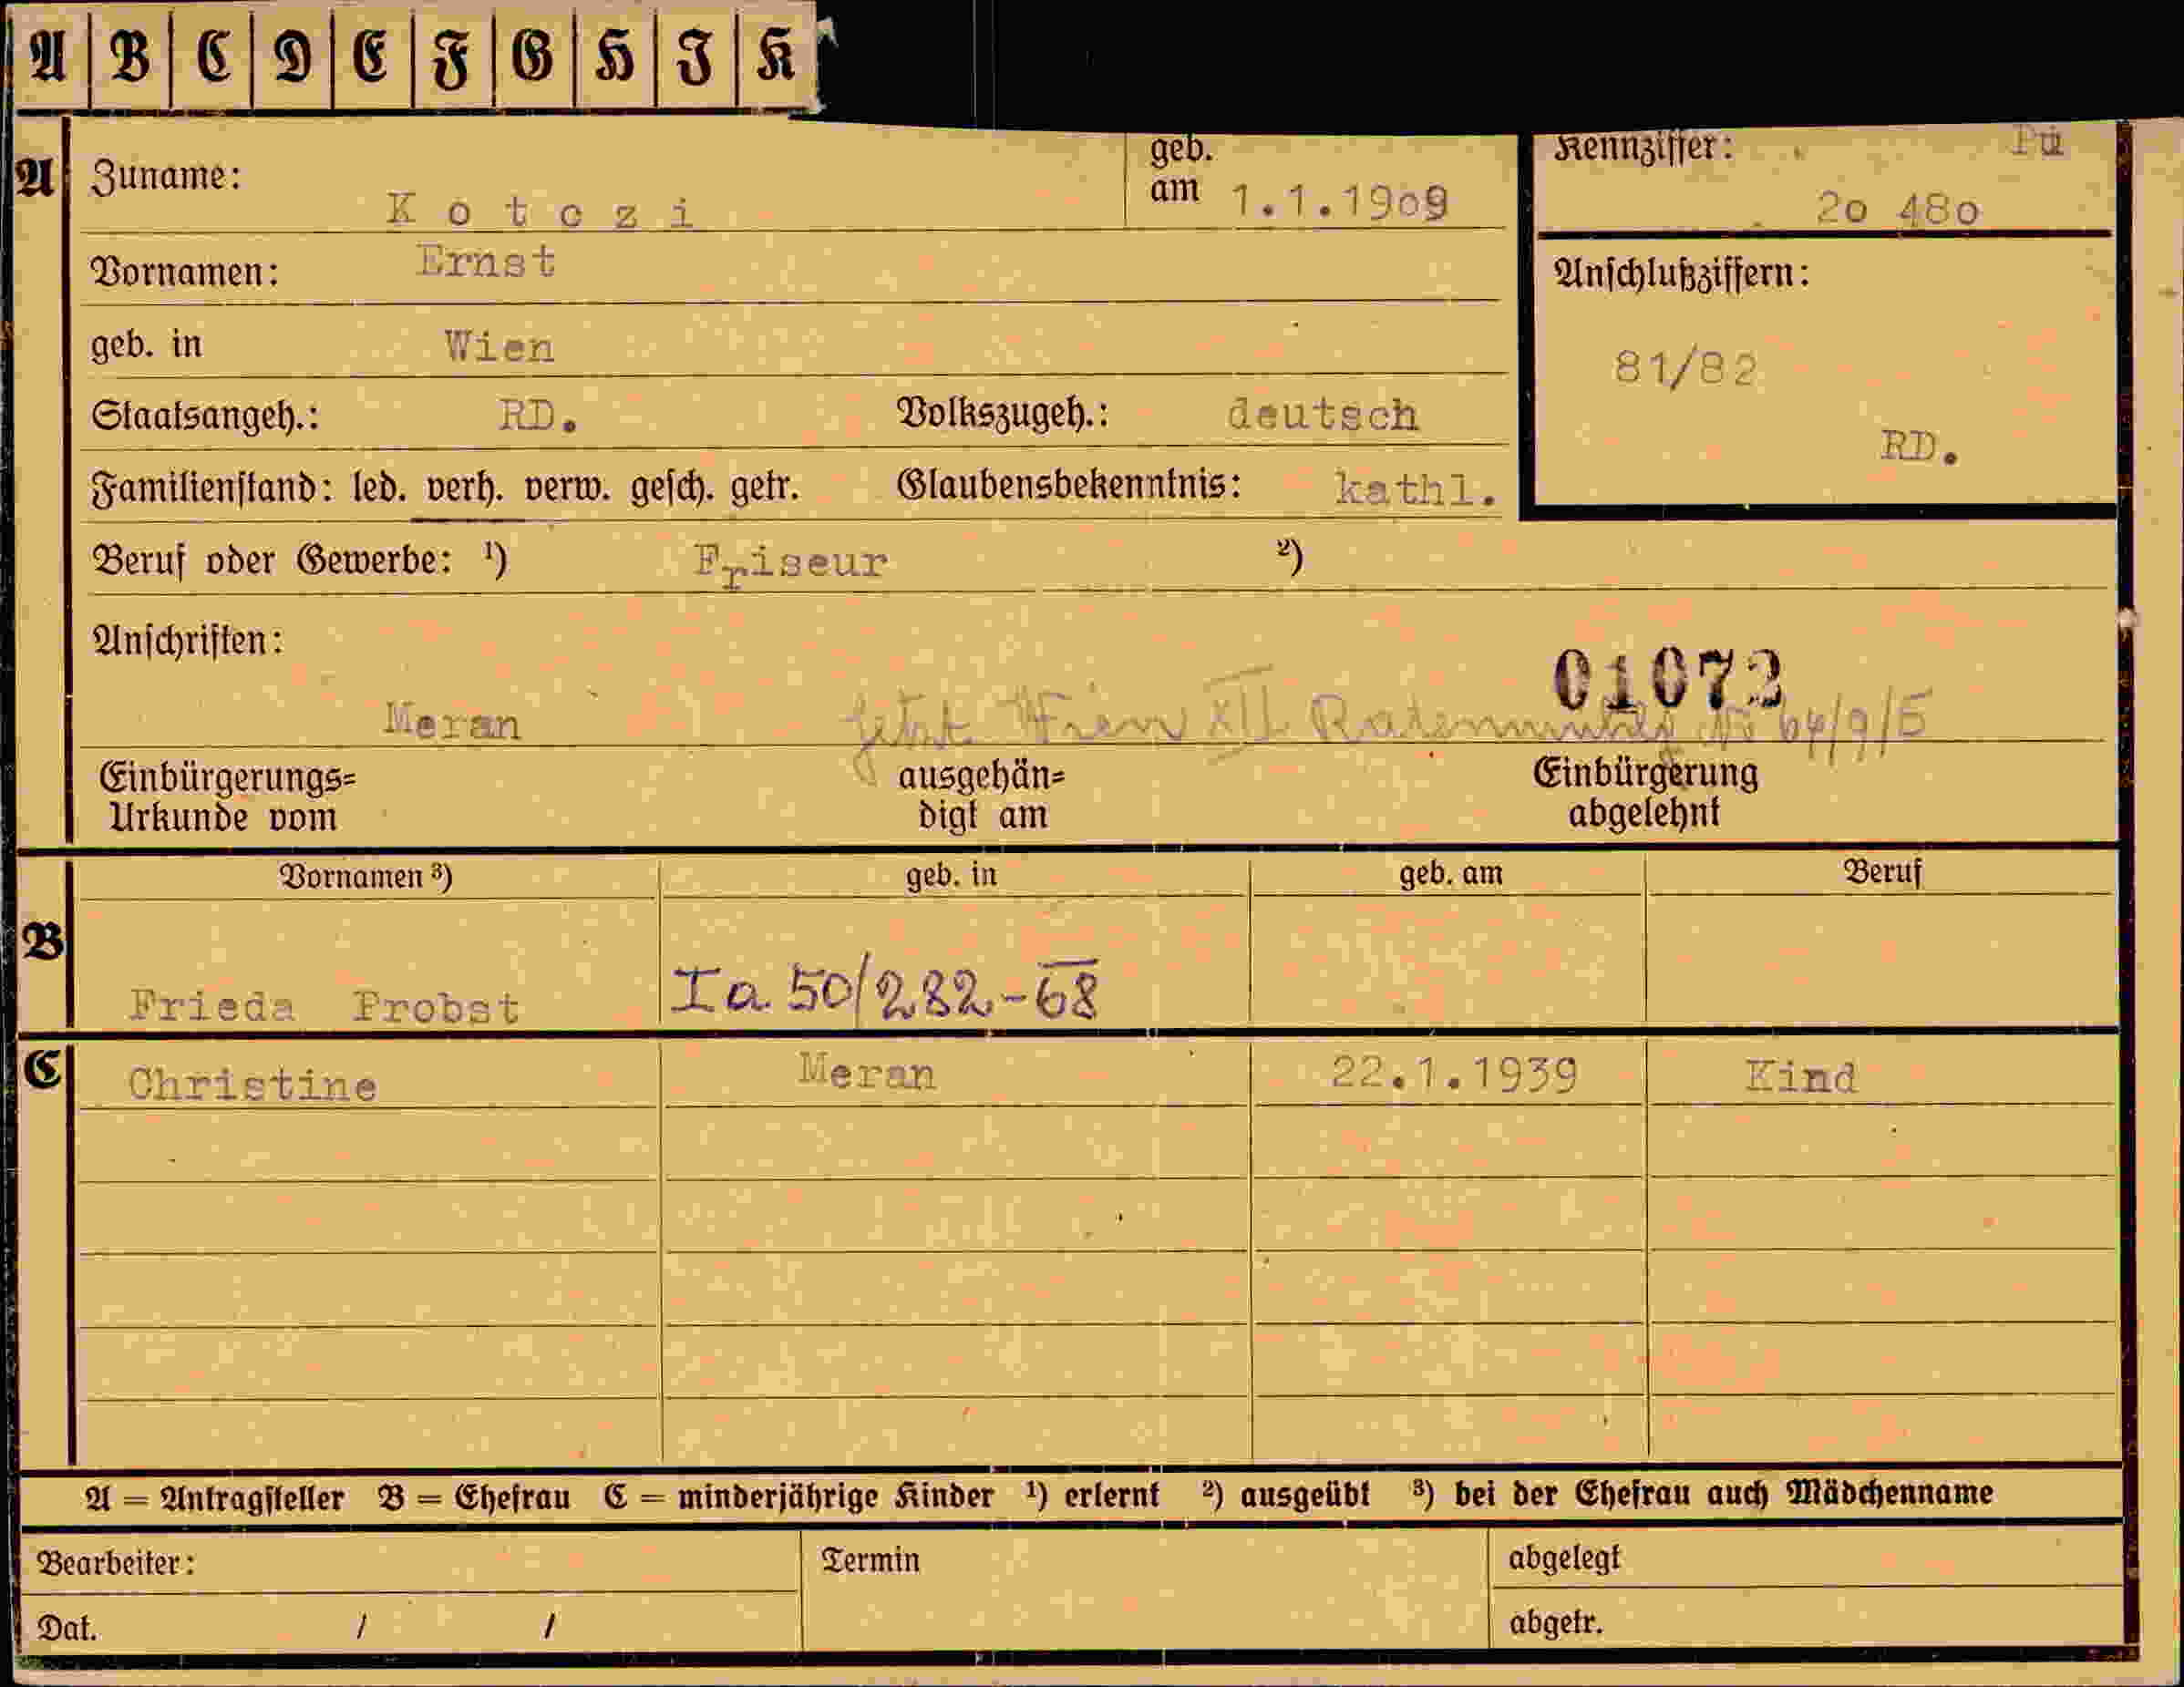 A B C D E F G H I K
A Zuname: Kotczi geb. am 1.1.1909
Kennziffer: Pü
20 480
Vornamen: Ernst
Anschlußziffern:
geb. in Wien
81/82
Staatsangeh.: RD. Volkszugeh.: deutsch
RD.
Familienstand: led. verh. verw. gesch. getr. Glaubensbekenntnis: kathl.
Beruf oder Gewerbe: ¹) Friseur ²)
Anschriften:
01073
Meran jetzt Wien XII 64/9/5
Einbürgerungs= ausgehän= Einbürgerung
Urkunde vom digt am abgelehnt
Vornamen ³) geb. in geb. am Beruf
B
Frieda Probst Ia 50/282-68
C Christine Meran 22.1.1939 Kind
A = Antragsteller B = Ehefrau C = minderjährige Kinder ¹) erlernt ²) ausgeübt ³) bei der Ehefrau auch Mädchenname
Bearbeiter: Termin abgelegt
Dat. / / abgetr.